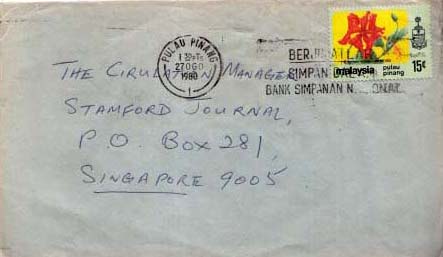 PULAU PINANG
27 OGO
1980
1
SIMPAN
BANK SIMPANAN
malaysia pulau pinang
15¢
THE CIRULATION MANAGER
STAMFORD JOURNAL,
P.O. BOX 281,
SINGAPORE 9005